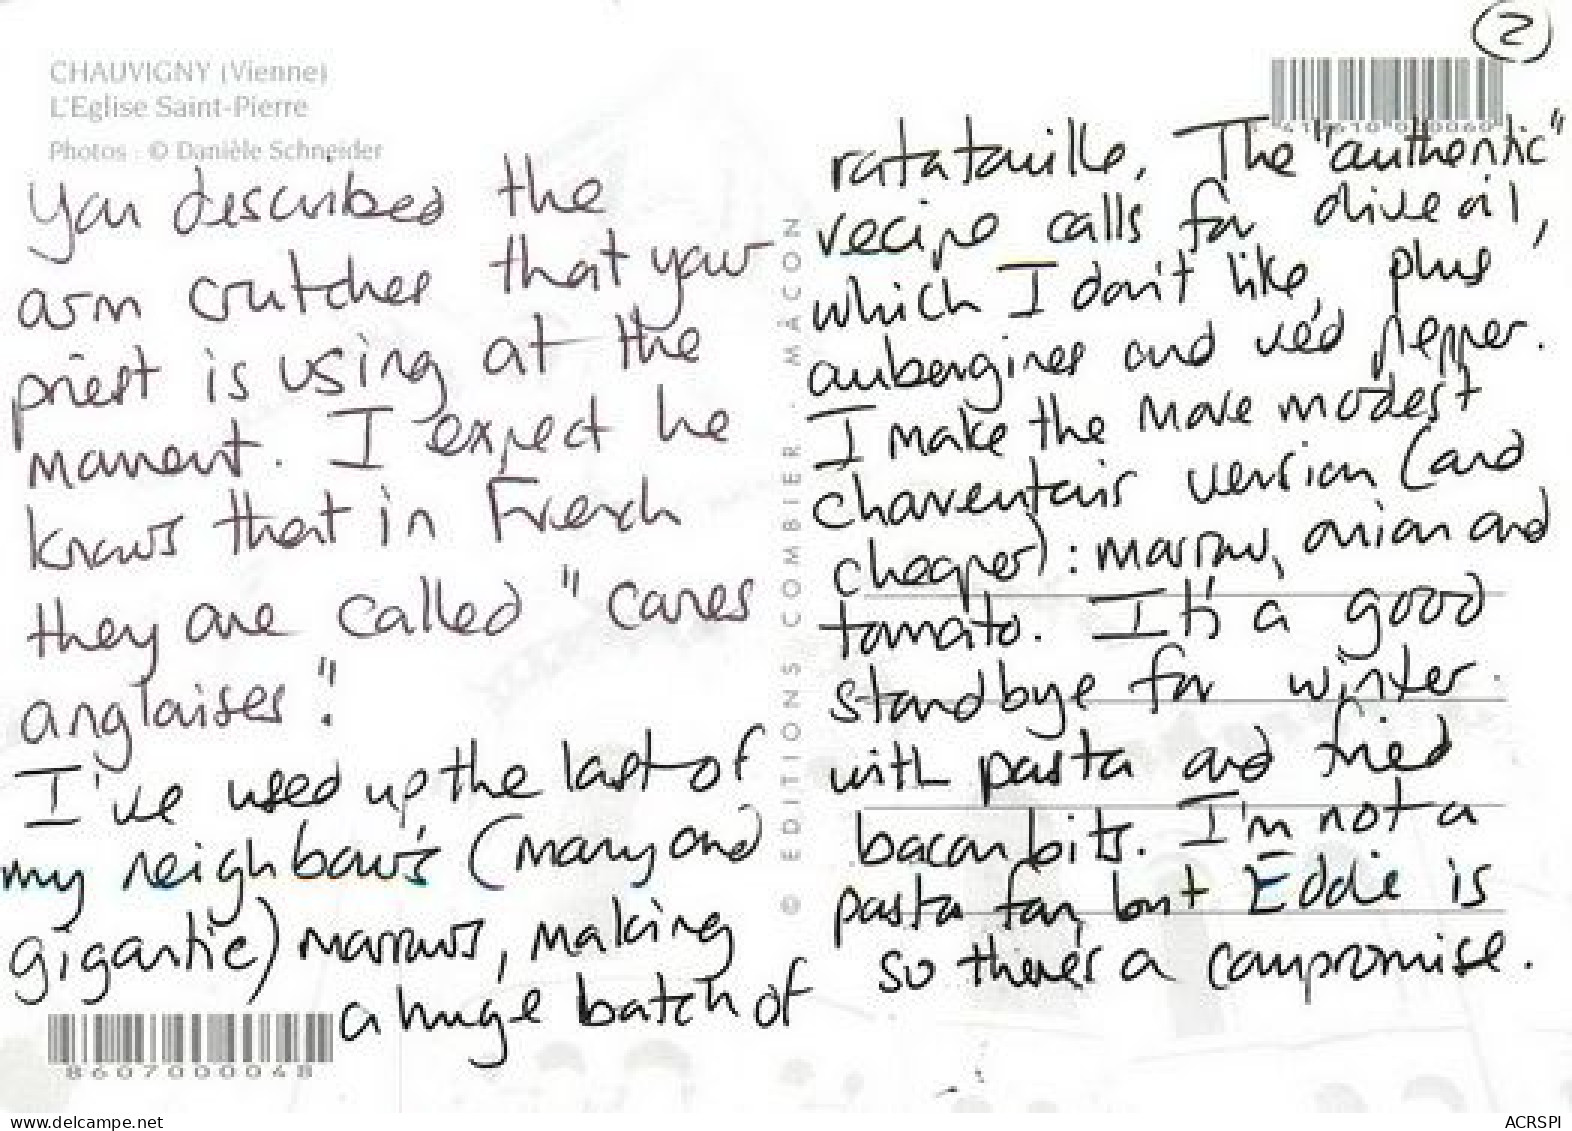 2
CHAUVIGNY (Vienne)
L'Eglise Saint-Pierre
Photos : © Danièle Schneider
you described the
arm crutches that your
priest is using at the
moment. I expect he
knows that in French
they are called "canes
anglaises"!
I've used up the last of
my neighbour's (many and
gigantic) marrows, making
a huge batch of
8607000048
© EDITIONS COMBIER - MÂCON
ratatouille. The "authentic"
recipe calls for olive oil,
which I don't like, plus
aubergines and red pepper.
I make the more modest
charentais version (and
cheaper): marrow, onion and
tomato. It's a good
standbye for winter.
with pasta and fried
bacon bits. I'm not a
pasta fan, but Eddie is
so there's a compromise.
www.delcampe.net
ACRSPI